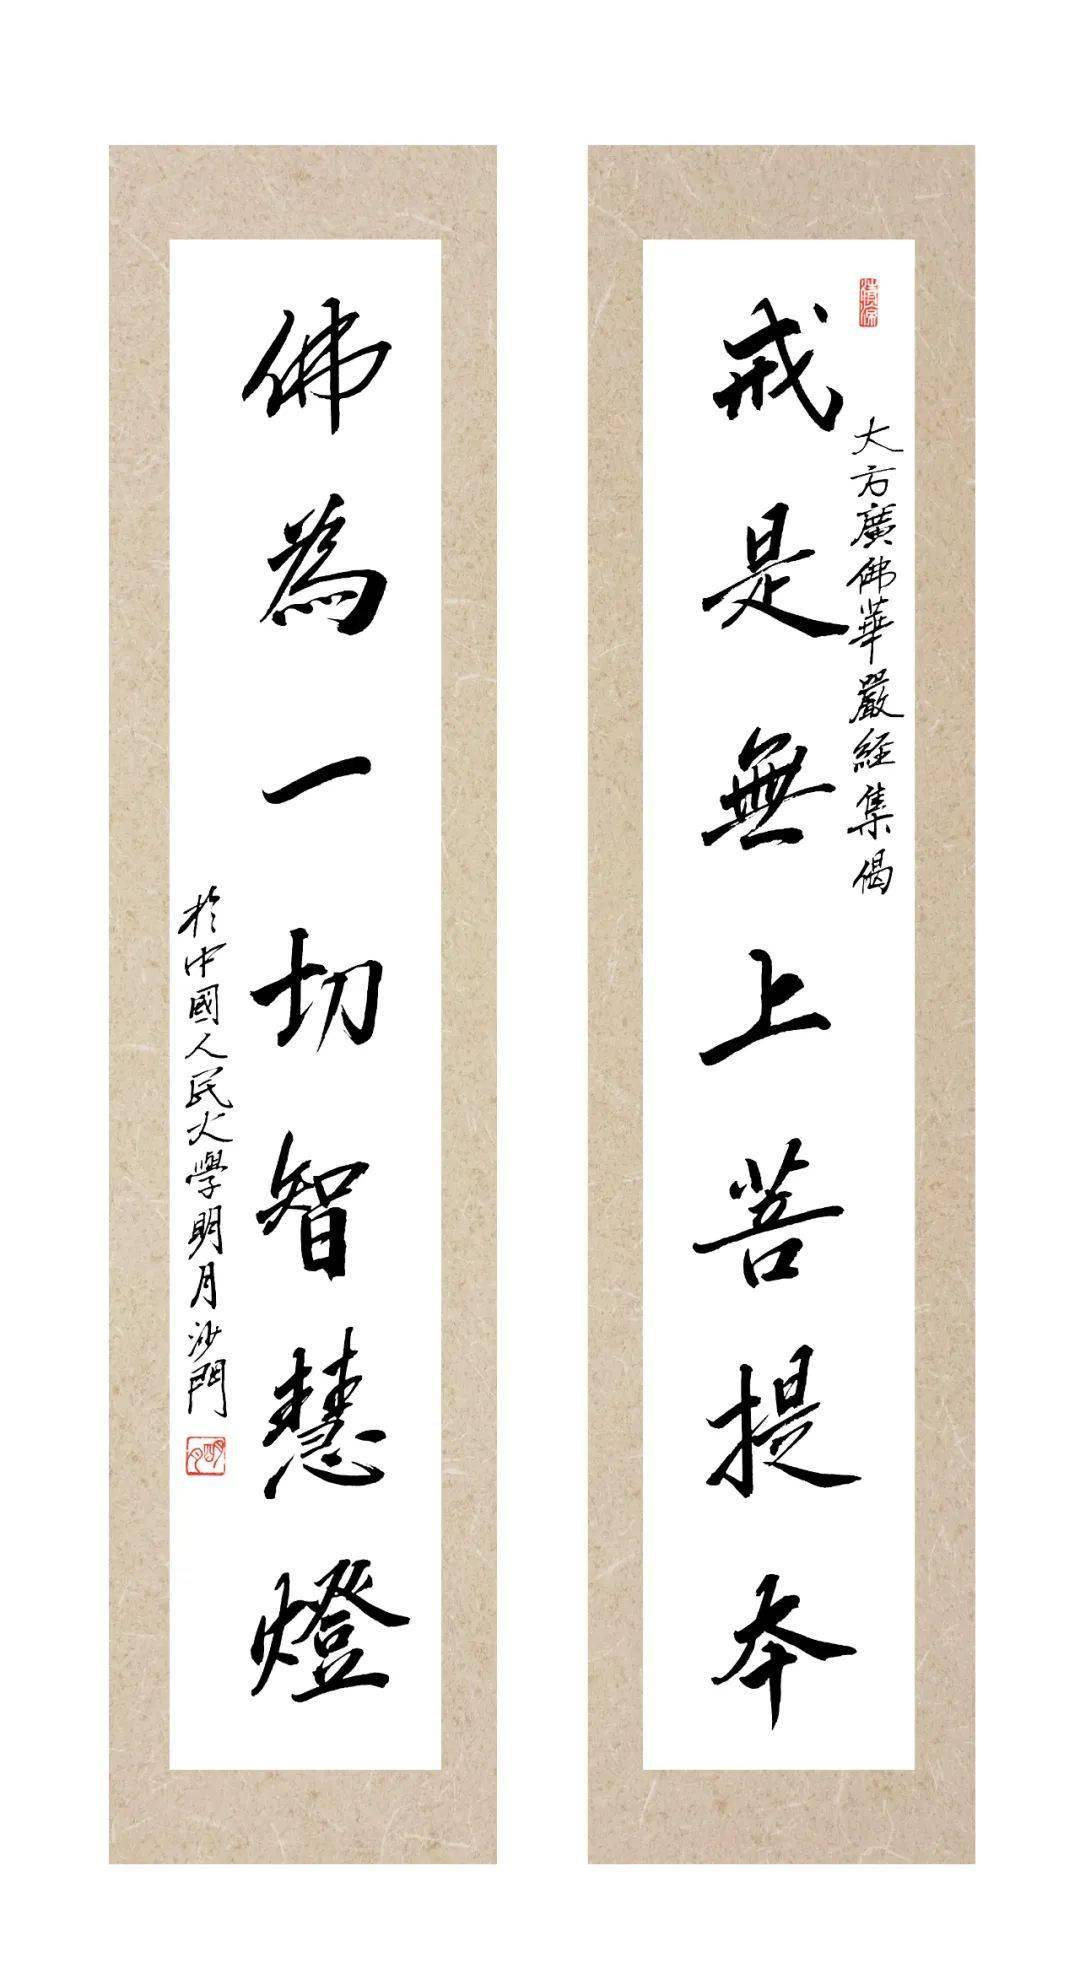 大方廣佛華嚴經集偈
戒是無上菩提本
佛為一切智慧燈
於中國人民大學明月沙門